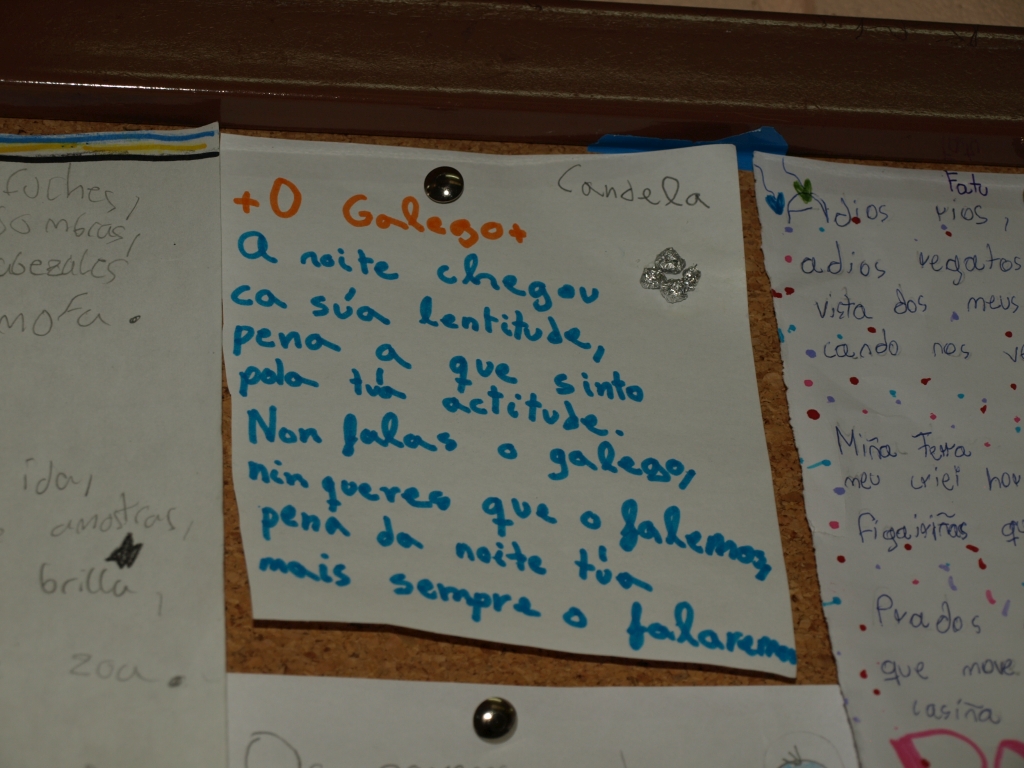 fuches,
abezales
mofa.
ida,
amostras,
brilla,
zoa.
Candela
+O Galego+
A noite chegou
ca súa lentitude,
pena a que sinto
pola túa actitude.
Non falas o galego,
nin queres que o falemos,
pena da noite túa
mais sempre o falaremos
Adios rios,
adios regatos
vista dos meus
cando nos
Miña Terra
meu criei
figairiñas
Prados
que move
casiña